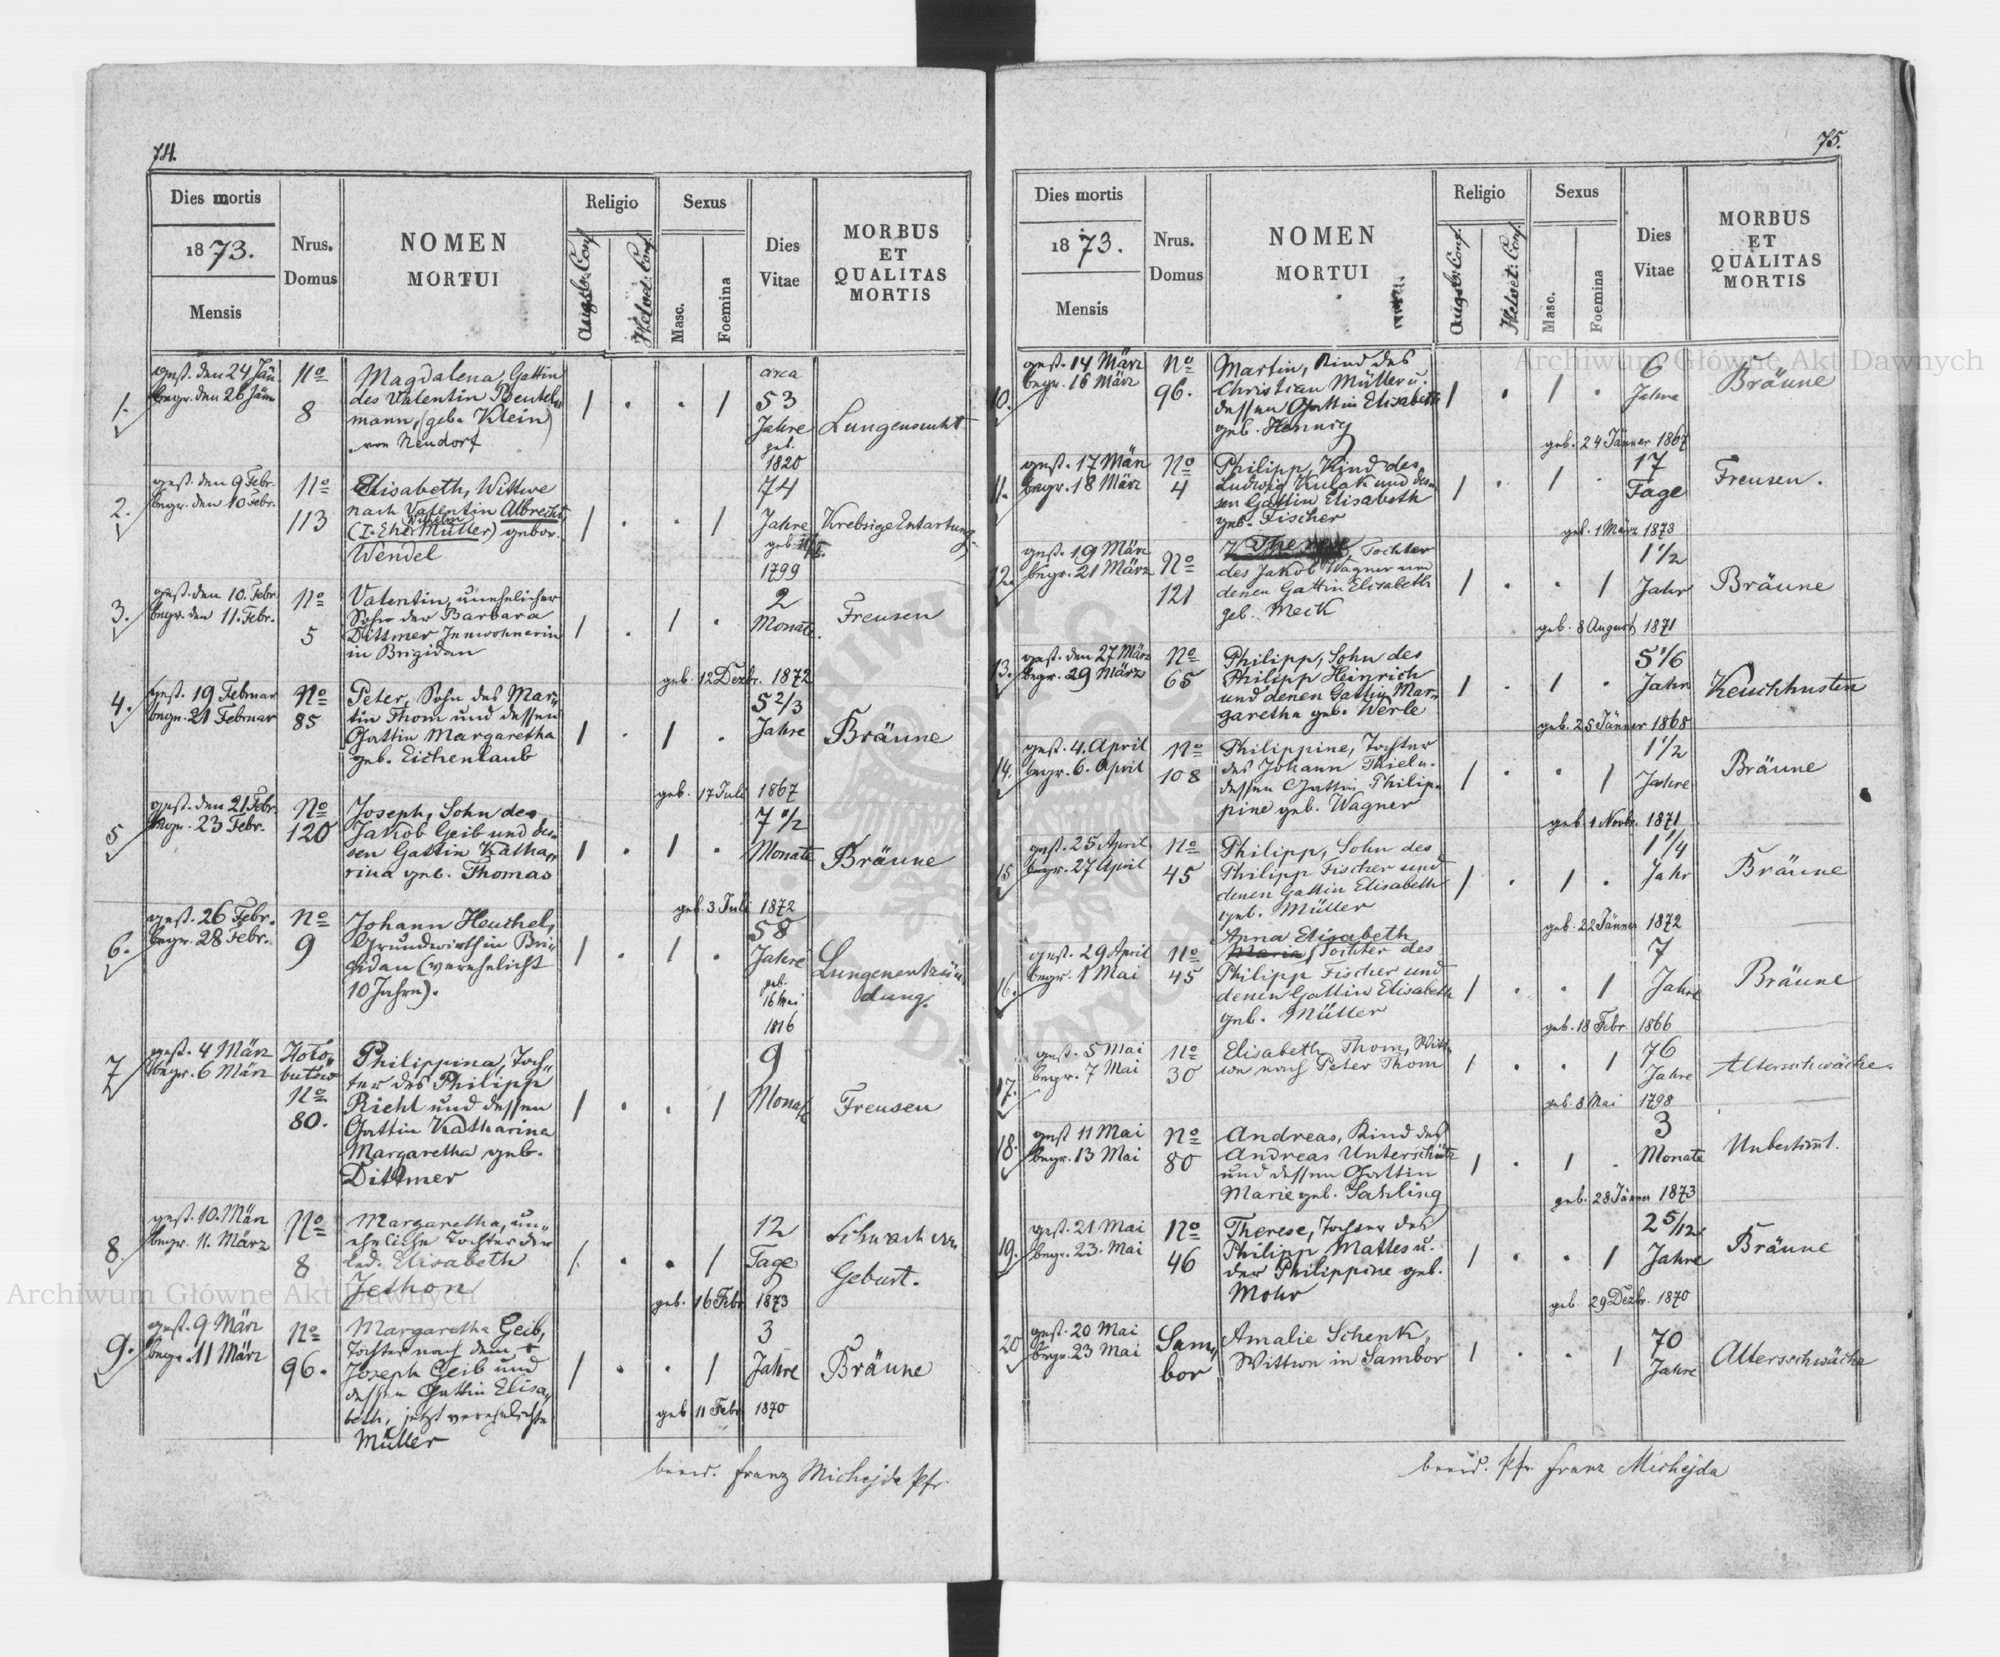 74.
Dies mortis
1873.
Mensis
Nrus.
Domus
NOMEN
MORTUI
Religio
Augsb. Conf.
Helvet: Conf.
Sexus
Masc.
Foemina
Dies
Vitae
MORBUS
ET
QUALITAS
MORTIS
1.
gest. den 24 Jän.
begr. den 26 Jän.
No
8
Magdalena, Gattin
des Valentin Beutel-
mann, (geb. Klein)
von Neudorf
1 . . 1
circa
53
Jahre
geb.
1820
Lungensucht
2.
gest. den 9 Febr.
begr. den 10 Febr.
No
113
Elisabeth, Wittwe
nach Valentin Albrecht,
Wilhelm
(I. Ehe: Müller) gebor.
Wendel
1 . . 1
74
Jahre
geb.
1799
Krebsige Entartung.
3.
gest. den 10. Febr.
begr. den 11. Febr.
No
5
Valentin, unehelicher
Sohn der Barbara
Dittmer Inwohnerin
in Brigidau
1 . 1 .
2
Monate.
geb. 12 Dezbr. 1872
Freusen
4.
gest. 19 Februar
begr. 21 Februar
No
85
Peter, Sohn des Mar-
tin Thom und dessen
Gattin Margaretha
geb. Eichenlaub
1 . 1 .
5 2/3
Jahre
geb. 17 Juli 1867
Bräune
5
gest. den 21 Febr.
begr. 23 Febr.
No
120
Joseph, Sohn des
Jakob Geib und des-
sen Gattin Katha-
rina geb. Thomas
1 . 1 .
7 1/2
Monate
geb. 3 Juli 1872
Bräune
6.
gest. 26 Febr.
begr. 28 Febr.
No
9
Johann Heuchel,
Grundwirth in Bri-
gidau (verehelicht
10 Jahre).
1 . 1 .
58
Jahre
geb.
16 Mai
1816
Lungenentzün-
dung.
7
gest. 4 März
begr. 6 März
No
80.
Philippina, Toch-
ter des Philipp
Riehl und dessen
Gattin Katharina
Margaretha geb.
Dittmer
1 . . 1
9
Monate
Freusen
8.
gest. 10. März
begr. 11. März
No
8
Margaretha, un-
eheliche Tochter der
led. Elisabeth
Jethon
1 . . 1
12
Tage
geb. 16 Febr. 1873
Geburt.
9.
gest. 9 März
begr. 11 März
No
96.
Margaretha Geib,
Tochter nach dem †
Joseph Geib und
dessen Gattin Elisa-
beth, jetzt verehelichte
Müller
1 . . 1
3
Jahre
geb. 11 Febr. 1870
Bräune
Franz Michejda Pfr.
75.
Dies mortis
1873.
Mensis
Nrus.
Domus
NOMEN
MORTUI
Religio
Augsb. Conf.
Helvet: Conf.
Sexus
Masc.
Foemina
Dies
Vitae
MORBUS
ET
QUALITAS
MORTIS
10.
gest. 14 März
begr. 16 März
No
96.
Martin, Kind des
Christian Müller u.
dessen Gattin Elisabeth
geb. Hennig
1 . 1 .
6
Jahre
geb. 24 Jänner 1867
Bräune
11.
gest. 17 März
begr. 18 März
No
4
Philipp, Kind des
Ludwig Kulak und des-
sen Gattin Elisabeth
geb. Fischer
1 . 1 .
17
Tage
geb. 1 März 1873
Freusen.
12.
gest. 19 März
begr. 21 März
No
121
Tochter
des Jakob Wagner und
denen Gattin Elisabeth
geb. Meck
1 . . 1
1 1/2
Jahr
geb. 8 August 1871
Bräune
13.
gest. den 27 März
begr. 29 März
No
65
Philipp, Sohn des
Philipp Heinrich
und denen Gattin Mar-
garetha geb. Werle
1 . 1 .
5 1/6
Jahr
geb. 25 Jänner 1868
Keuchhusten
14.
gest. 4. April
begr. 6. April
No
108
Philippine, Tochter
des Johann Thiel u.
dessen Gattin Philip-
pine geb. Wagner
1 . . 1
1 1/2
Jahre
geb. 1 Novbr. 1871
Bräune
15
gest. 25 April
begr. 27 April
No
45
Philipp, Sohn des
Philipp Fischer und
denen Gattin Elisabeth
geb. Müller
1 . 1 .
1 1/4
Jahr
geb. 22 Jänner 1872
Bräune
16.
gest. 29 April
begr. 1 Mai
No
45
Anna Elisabeth
Maria, Tochter des
Philipp Fischer und
denen Gattin Elisabeth
geb. Müller
1 . . 1
7
Jahre
geb. 18 Febr. 1866
Bräune
17.
gest. 5 Mai
begr. 7 Mai
No
30
Elisabeth Thom, Witt-
we nach Peter Thom
1 . . 1
76
Jahre
geb. 8 Mai 1798
Altersschwäche.
18.
gest. 11 Mai
begr. 13 Mai
No
80
Andreas, Kind des
Andreas Unterschütz
und dessen Gattin
Marie geb. Sahling
1 . 1 .
3
Monate
geb. 28 Jänner 1873
Unbestimmt.
19.
gest. 21 Mai
begr. 23. Mai
No
46
Therese, Tochter des
Philipp Mattes u.
der Philippine geb.
Mohr
1 . . 1
2 5/12
Jahre
geb. 29 Dezbr. 1870
Bräune
20
gest. 20 Mai
begr. 23 Mai
Sam-
bor
Amalie Schenk,
Wittwe in Sambor
1 . . 1
70
Jahre
Altersschwäche
Pfr. Franz Michejda
Archiwum Główne Akt Dawnych
Archiwum Główne Akt Dawnych